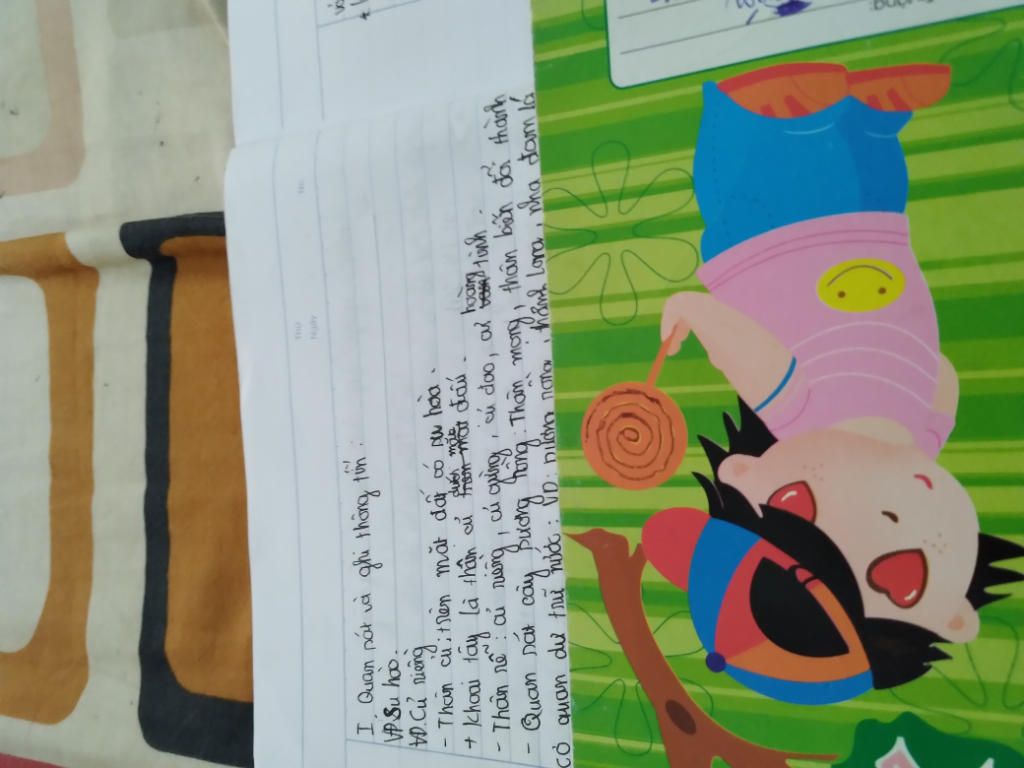 Thứ
Ngày
I. Quan sát và ghi thông tin:
VD: Su hào
VD: Củ riềng
- Thân củ: trên mặt đất có su hào.
+ Khoai tây là thân củ dưới mặt đất.
- Thân rễ: củ riềng, củ gừng, củ dao, củ hoàng tinh.
- Quan sát cây xương rồng: Thân mọng, thân biến đổi thành
có quan dự trữ nước: VD: , thành long, nha đam là